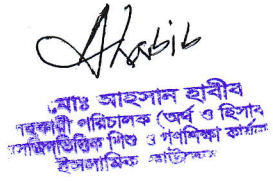 Ahabib
মোঃ আহসান হাবীব
সহকারী পরিচালক (অর্থ ও হিসাব
মসজিদভিত্তিক শিশু ও গণশিক্ষা কার্যক্রম
ইসলামিক ফাউন্ডেশন